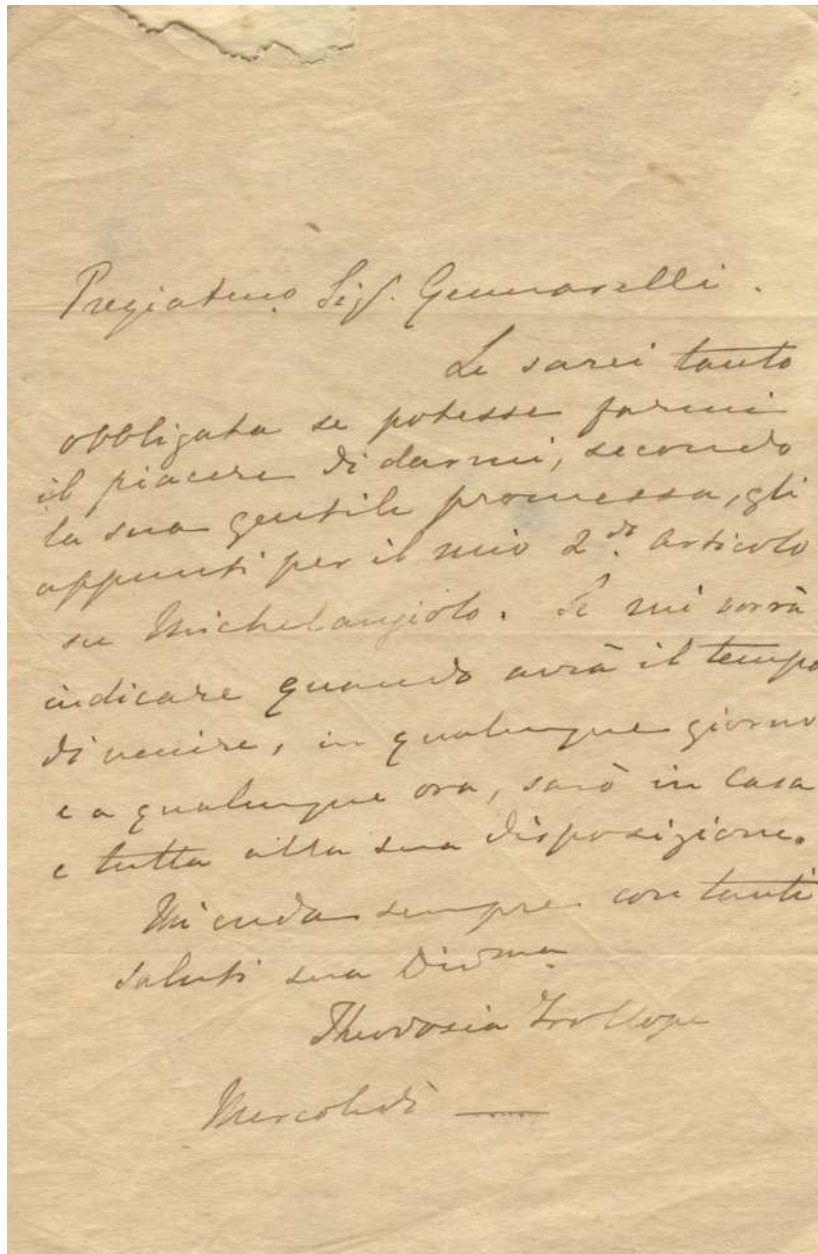 Pregiatmo. Sig. Gennarelli.
Le sarei tanto
obbligata se potesse farmi
il piacere di darmi, secondo
la sua gentile promessa, gli
appunti per il mio 2do. articolo
su Michelangiolo. Se mi vorrà
indicare quando avrà il tempo
di venire, in qualunque giorno
e a qualunque ora, sarò in casa
e tutta alla sua disposizione.
Mi creda sempre con tanti
saluti sua Divma
Theodosia Trollope
Mercoledì —